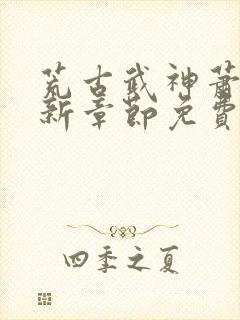 荒古武神萧
新章节免费
四季之夏